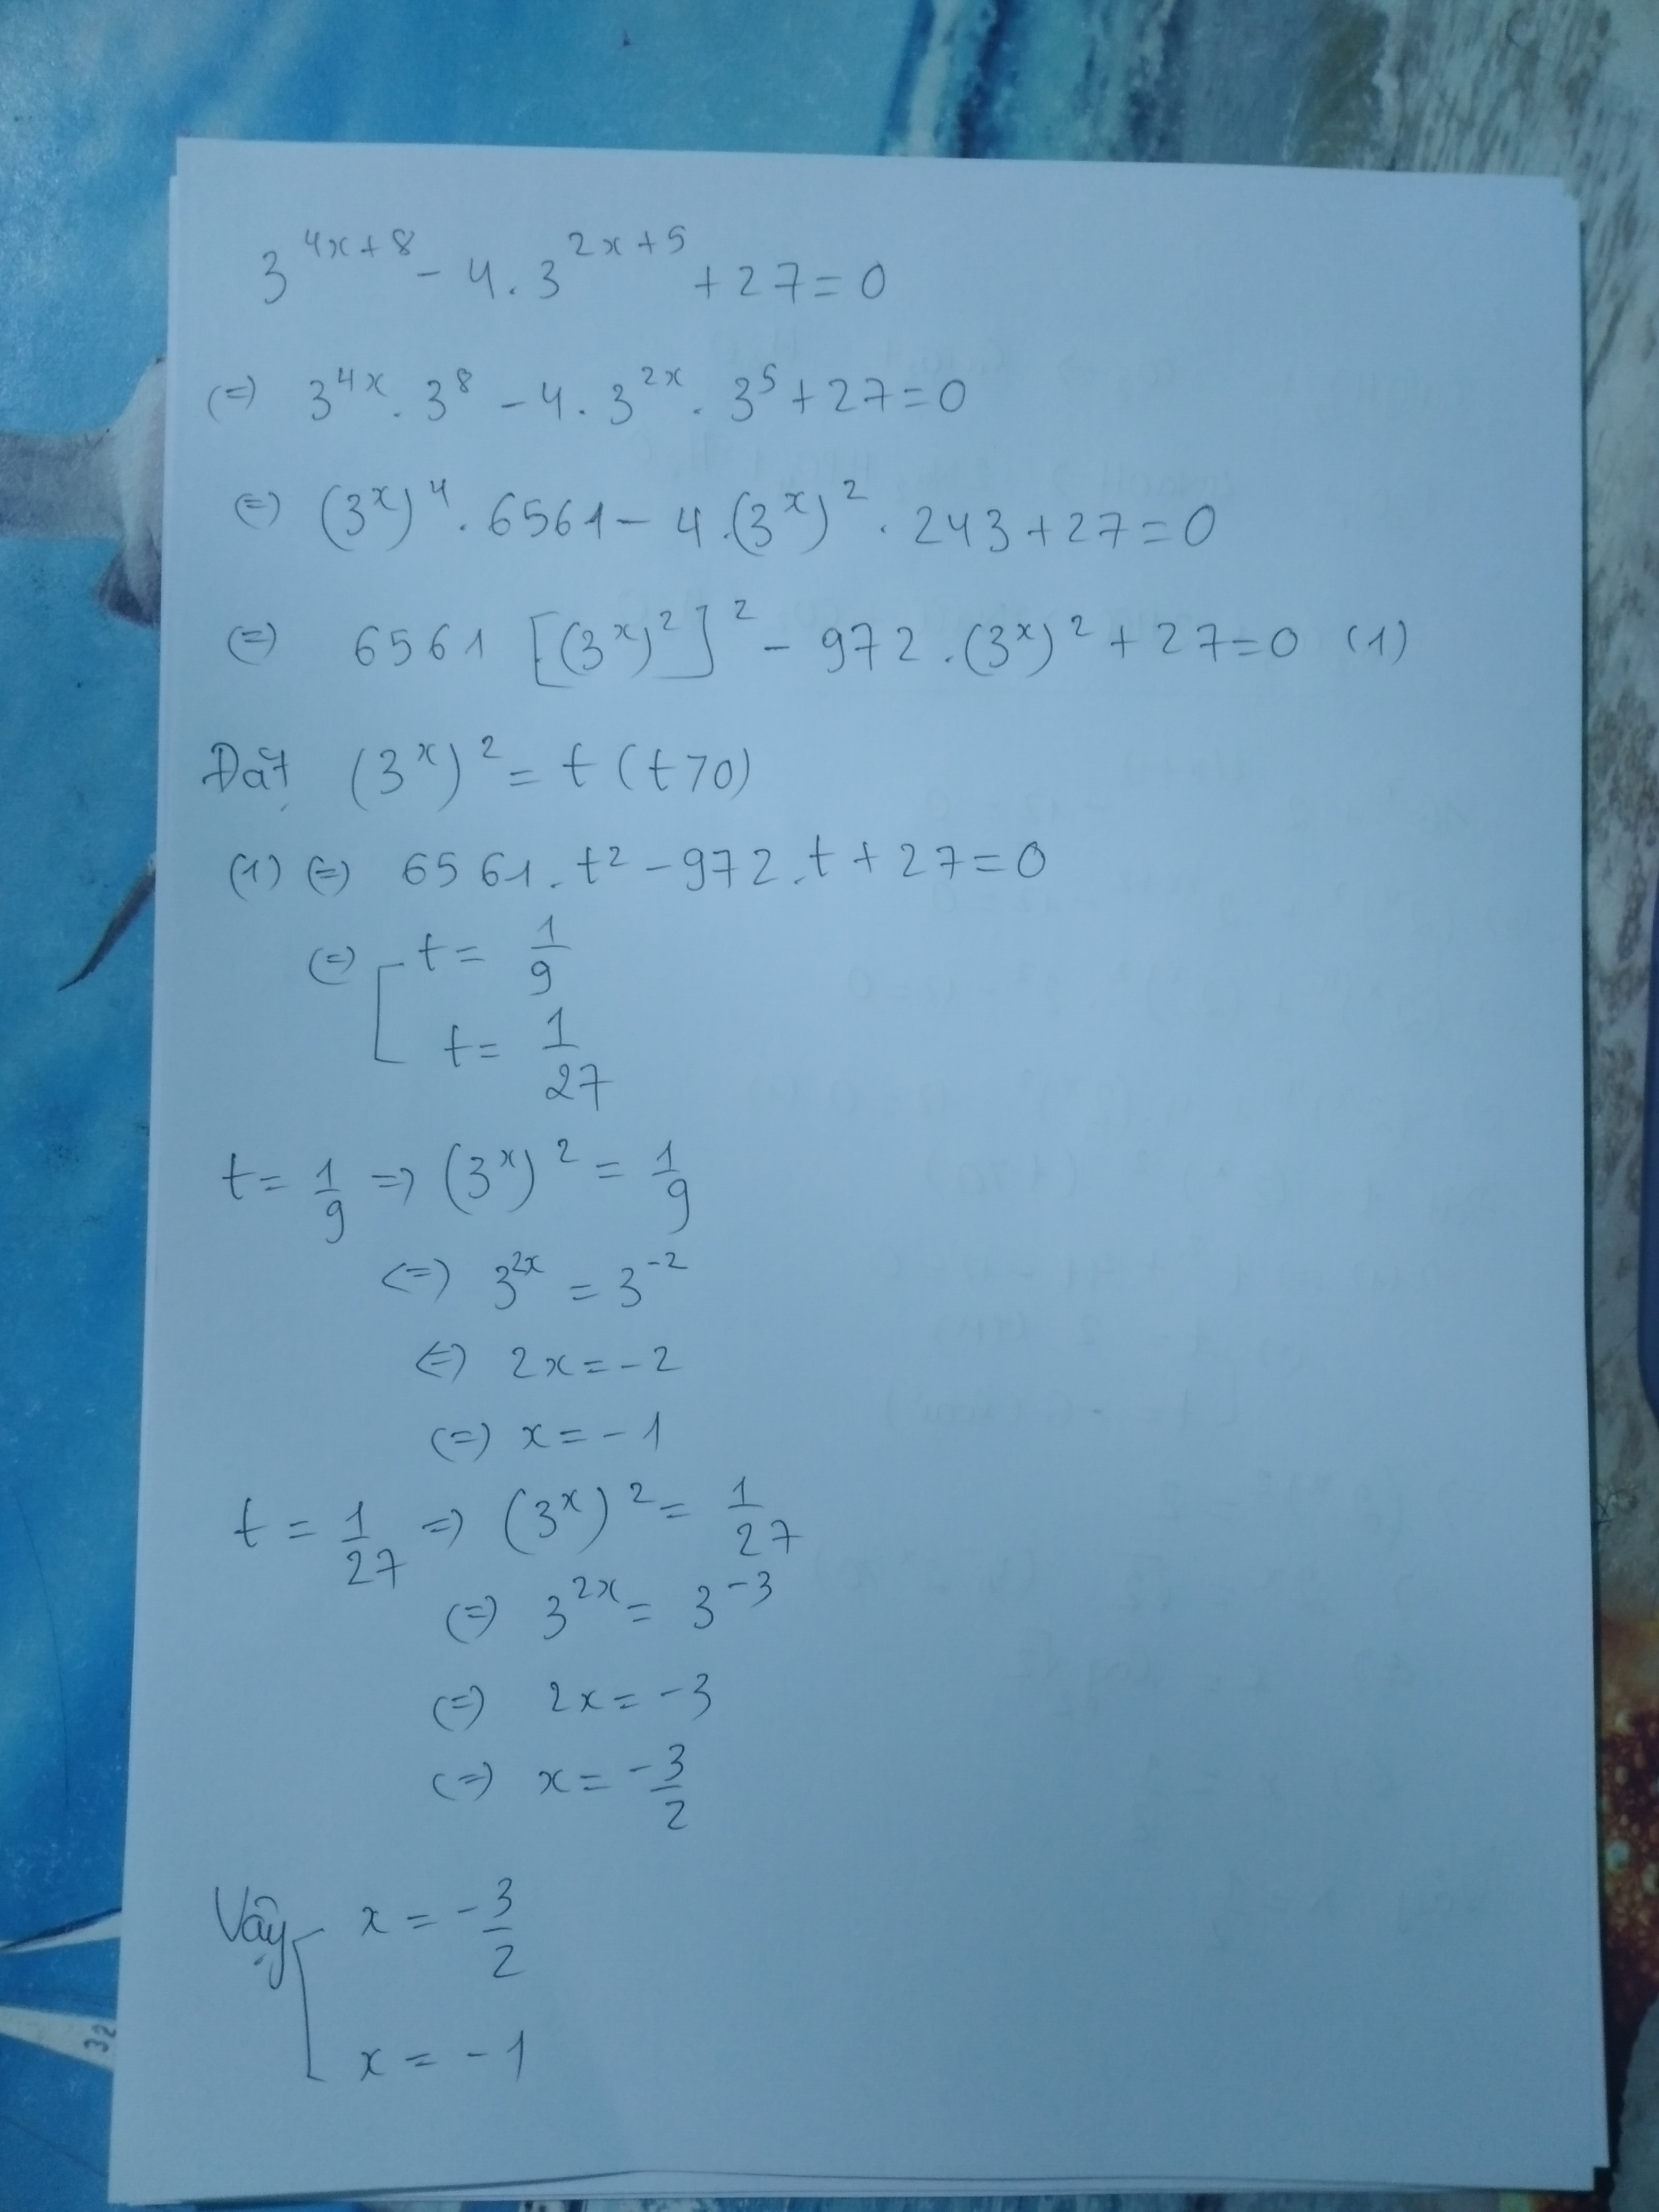 3^{4x+8} - 4.3^{2x+5} + 27 = 0
(=) 3^{4x}. 3^8 - 4. 3^{2x}. 3^5 + 27 = 0
(=) (3^x)^4. 6561 - 4.(3^x)^2. 243 + 27 = 0
(=) 6561 [(3^x)^2]^2 - 972.(3^x)^2 + 27 = 0 (1)
Đặt (3^x)^2 = t (t>0)
(1) (=) 6561. t^2 - 972.t + 27 = 0
(=) [ t = 1/9
t = 1/27
t = 1/9 => (3^x)^2 = 1/9
<=> 3^{2x} = 3^{-2}
<=> 2x = -2
(=) x = -1
t = 1/27 => (3^x)^2 = 1/27
(=) 3^{2x} = 3^{-3}
(=) 2x = -3
(=) x = -3/2
Vậy [ x = -3/2
x = -1
32